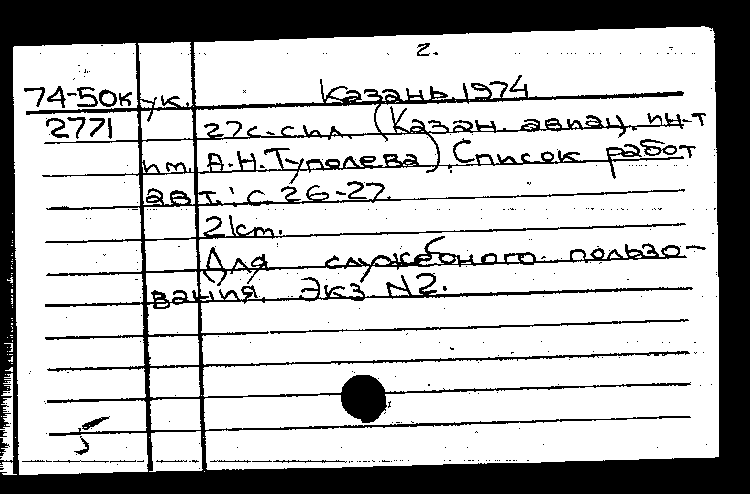 2.
74-50к ук. Казань. 1974
2771 27с. с ил. (Казан. авиац. ин-т
им. А.Н. Туполева). Список работ
авт.: с. 26-27.
21 cm.
Для служебного пользо-
вания. Экз. N2.
5